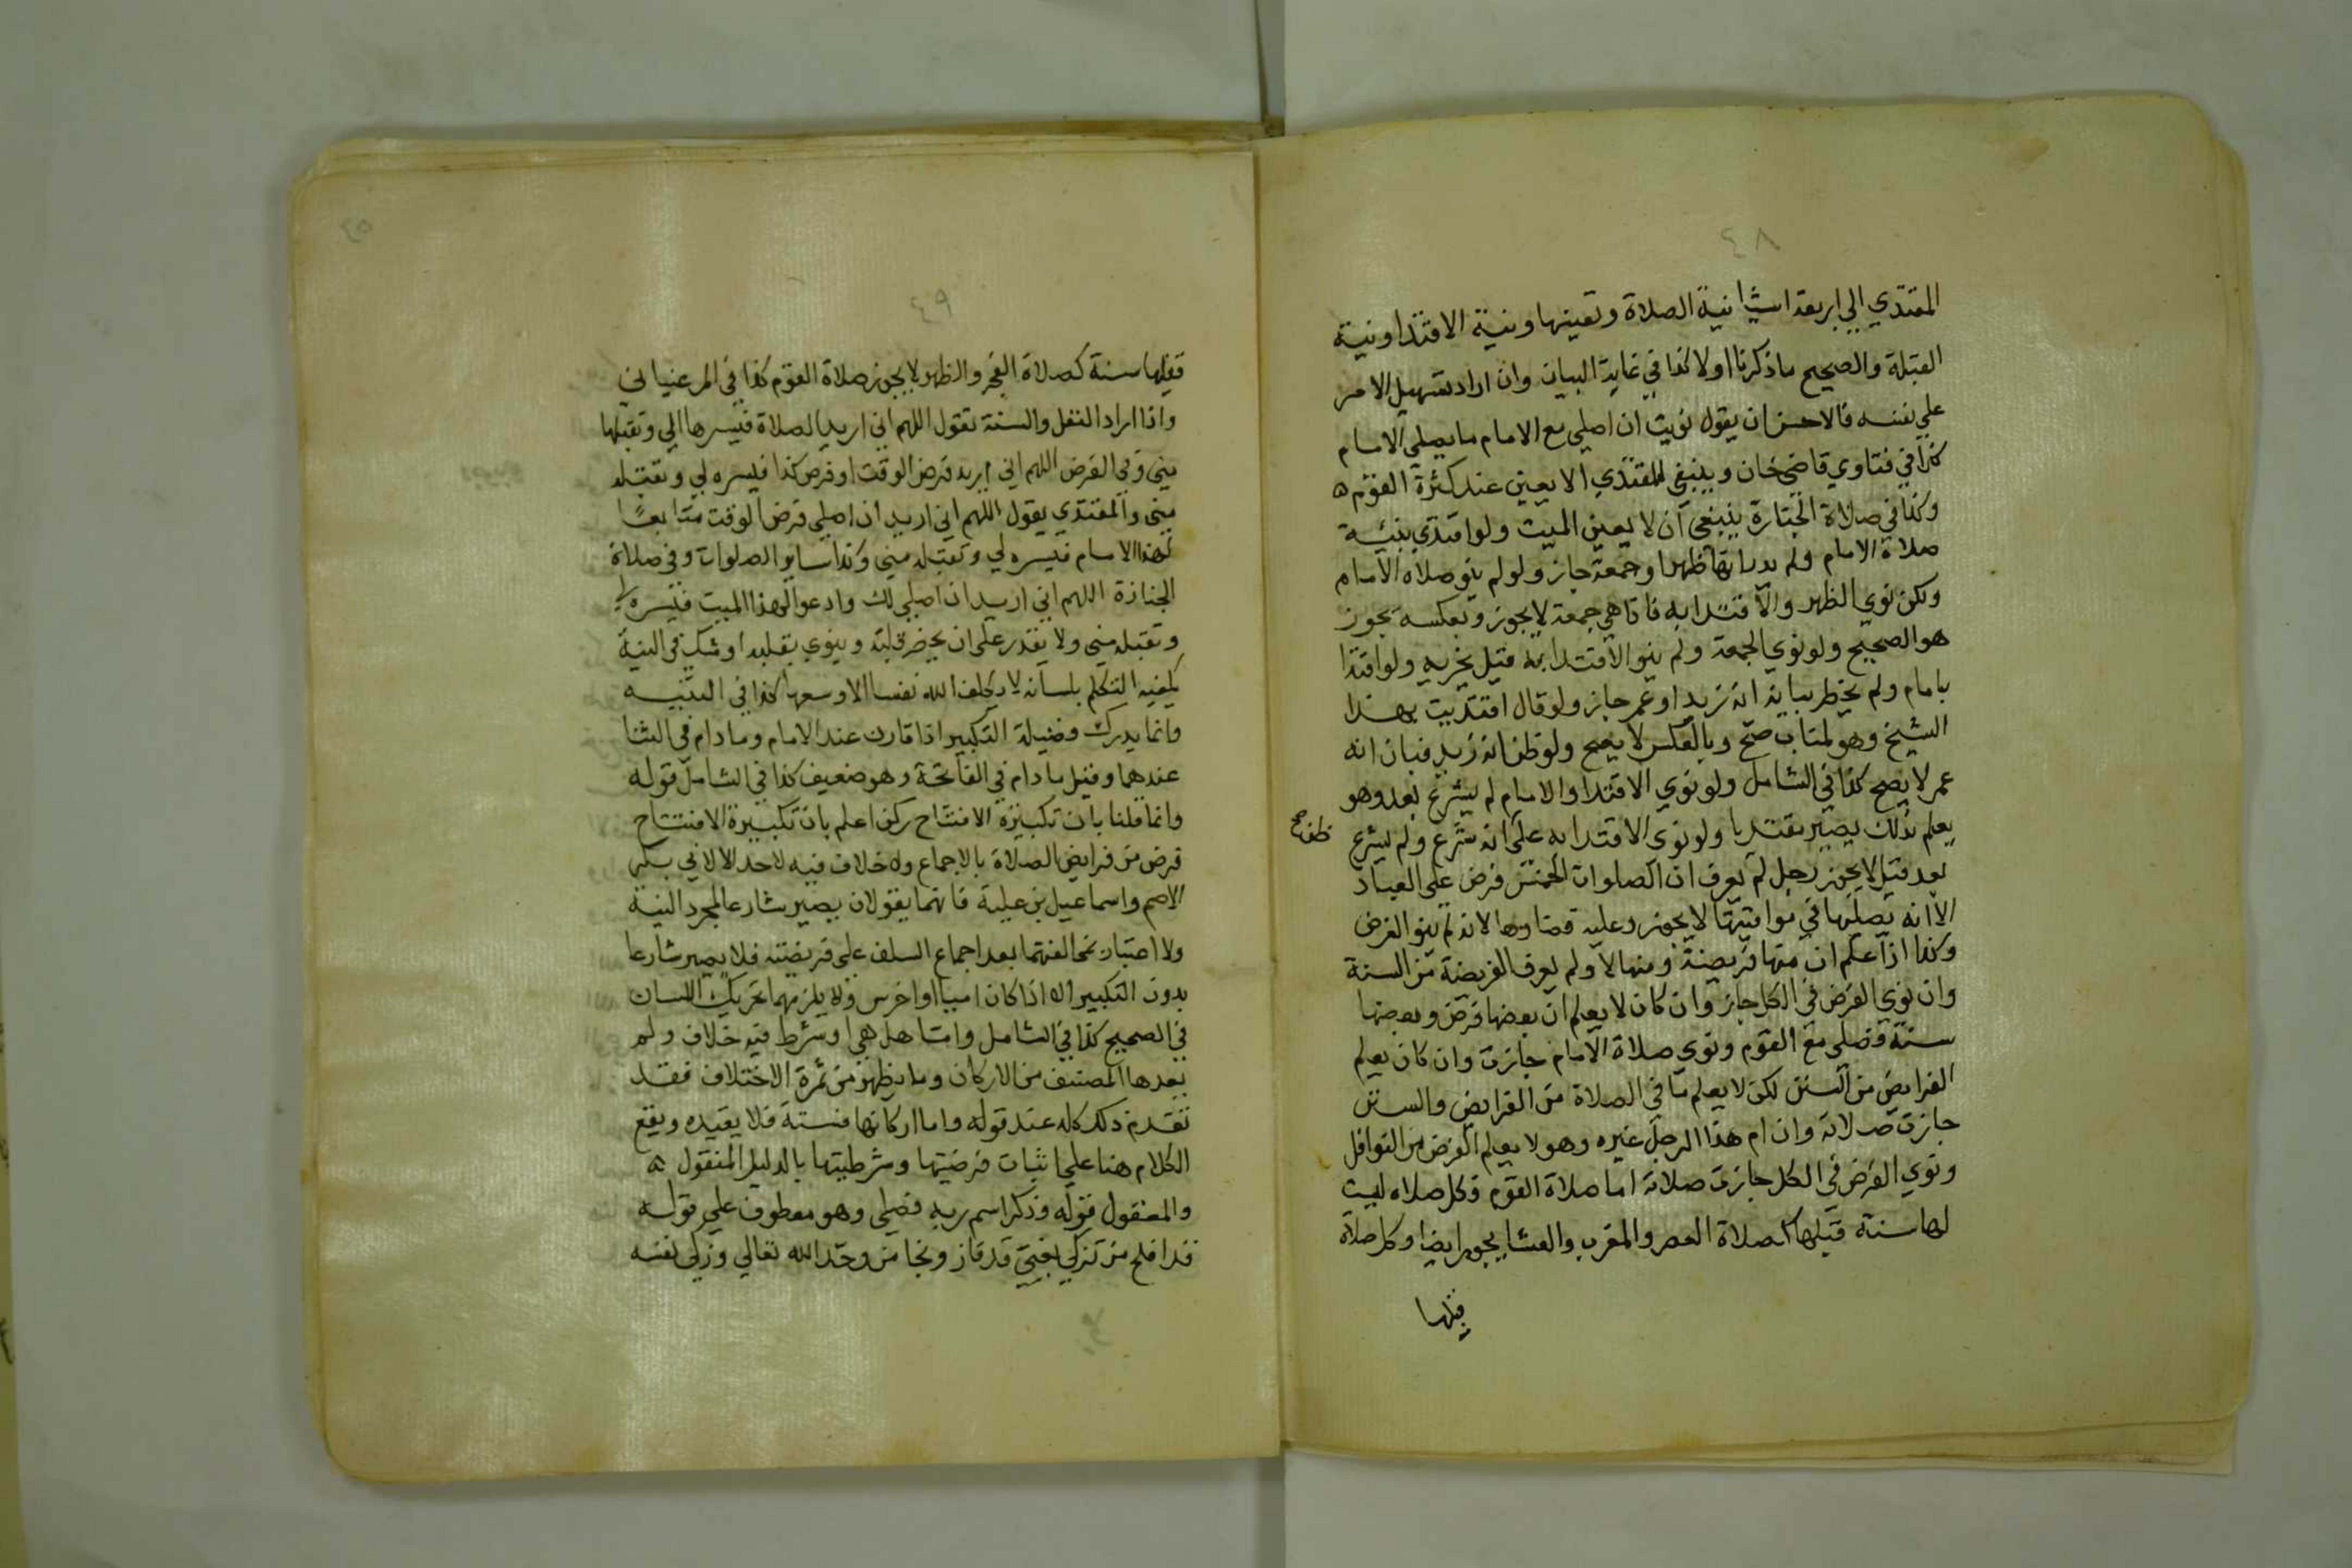 ٤٨
المقتدي الي اربعة اشيا نية الصلاة وتعينها ونية الاقتدا ونية
القبلة والصحيح ما ذكرنا اولا كذا في غاية البيان وان اراد تسهيل الامر
علي نفسه فالاحسن ان يقول نويت ان اصلي مع الامام ما يصلي الامام
كذا في فتاوي قاضي خان وينبغي للمقتدي الا يعين عند كثرة القوم ه
وكذا في صلاة الجنازة ينبغي ان لا يعين الميت ولو اقتدي بنية
صلاة الامام ولم يدر انها ظهرا وجمعة جاز ولو لم ينو صلاة الامام
ولكن نوي الظهر والاقتدا به فاذا هي جمعة لا يجوز وبعكسه يجوز
هو الصحيح ولو نوي الجمعة ولم ينو الاقتدا به قيل يجزيه ولو اقتدا
بامام ولم يخطر بباله انه زيد او عمر جاز ولو قال اقتديت بهذا
الشيخ وهو لشاب صح وبالعكس لا يصح ولو ظن انه زيد فبان انه
عمر لا يصح كذا في الشامل ولو نوي الاقتدا والامام لم يشرع بعد وهو
يعلم بذلك يصير مقتديا ولو نوي الاقتدا به علي انه شرع ولم يشرع
بعد قيل لا يجوز رجل لم يعرف ان الصلوات الخمس فرض علي العباد
الا انه يصليها في مواقيتها لا يجوز وعليه قضاوها لانه لم ينو الفرض
وكذا اذا علم ان منها فريضة ومنها لا ولم يعرف الفريضة من السنة
وان نوي الفرض في الكل جاز وان كان لا يعلم ان بعضها فرض وبعضها
سنة فصلي مع القوم ونوي صلاة الامام جازت وان كان يعلم
الفرايض من السنن لكن لا يعلم ما في الصلاة من الفرايض والسنن
جازت صلاته وان ام هذا الرجل غيره وهو لا يعلم الفرض من النوافل
ونوي الفرض في الكل جازت صلاته اما صلاة القوم فكل صلاه ليست
لها سنة قبلها كصلاة العصر والمغرب والعشا يجوز ايضا وكل صلاة
قبلها
٤٩
قبلها سنة كصلاة الفجر والظهر لا يجوز صلاة القوم كذا في المرغيناني
واذا اراد النفل والسنة تقول اللهم اني اريد الصلاة فيسرها لي وتقبلها
مني وفي الفرض اللهم اني اريد فرض الوقت او فرض كذا فيسره لي وتقبله
مني والمقتدي يقول اللهم اني اريد ان اصلي فرض الوقت متابعًا
لهذا الامام فيسره لي وتقبله مني وكذا ساير الصلوات وفي صلاة
الجنازة اللهم اني اريد ان اصلي لك وادعوا لهذا الميت فيسره لي
وتقبله مني ولا يقدر علي ان يحضر قلبه وينوي بقلبه او شك في النية
يكفيه التكلم بلسانه لا يكلف الله نفسا الا وسعها كذا في
وانما يدرك فضيلة التكبير اذا قارن عند الامام وما دام في الثنا
عندهما وقيل ما دام في الفاتحة وهو ضعيف كذا في الشامل قوله
وانما قلنا بان تكبيرة الافتتاح ركن اعلم بان تكبيرة الافتتاح
فرض من فرايض الصلاة بالاجماع ولا خلاف فيه لاحد الا لابي بكر
الاصم واسماعيل بن علية فانهما يقولان يصير شارعا لمجرد النية
ولا اعتبار لمخالفتهما بعد اجماع السلف علي فريضته فلا يصير شارعا
بدون التكبير الا اذا كان اميا او اخرس ولا يلزمهما تحريك اللسان
في الصحيح كذا في الشامل واما هل هي او شرط فيه خلاف ولم
يعدها المصنف من الاركان وما يظهر من ثمرة الاختلاف فقد
تقدم ذلك كله عند قوله واما اركانها فستة فلا يفيده ويقع
الكلام هنا علي اثبات فرضيتها وشرطيتها بالدليل المنقول ه
والمعقول قوله وذكر اسم ربه فصلي وهو معطوف علي قوله
قد افلح من تزكي قد فاز ونجا من وحد الله تعالي وزكي نفسه